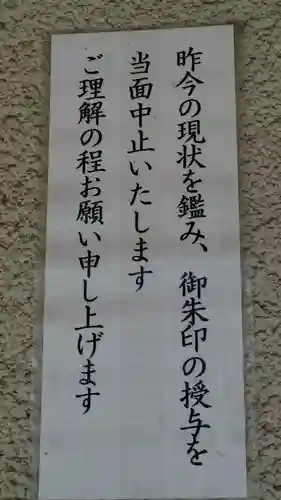 昨今の現状を鑑み、御朱印の授与を
当面中止いたします
ご理解の程お願い申し上げます